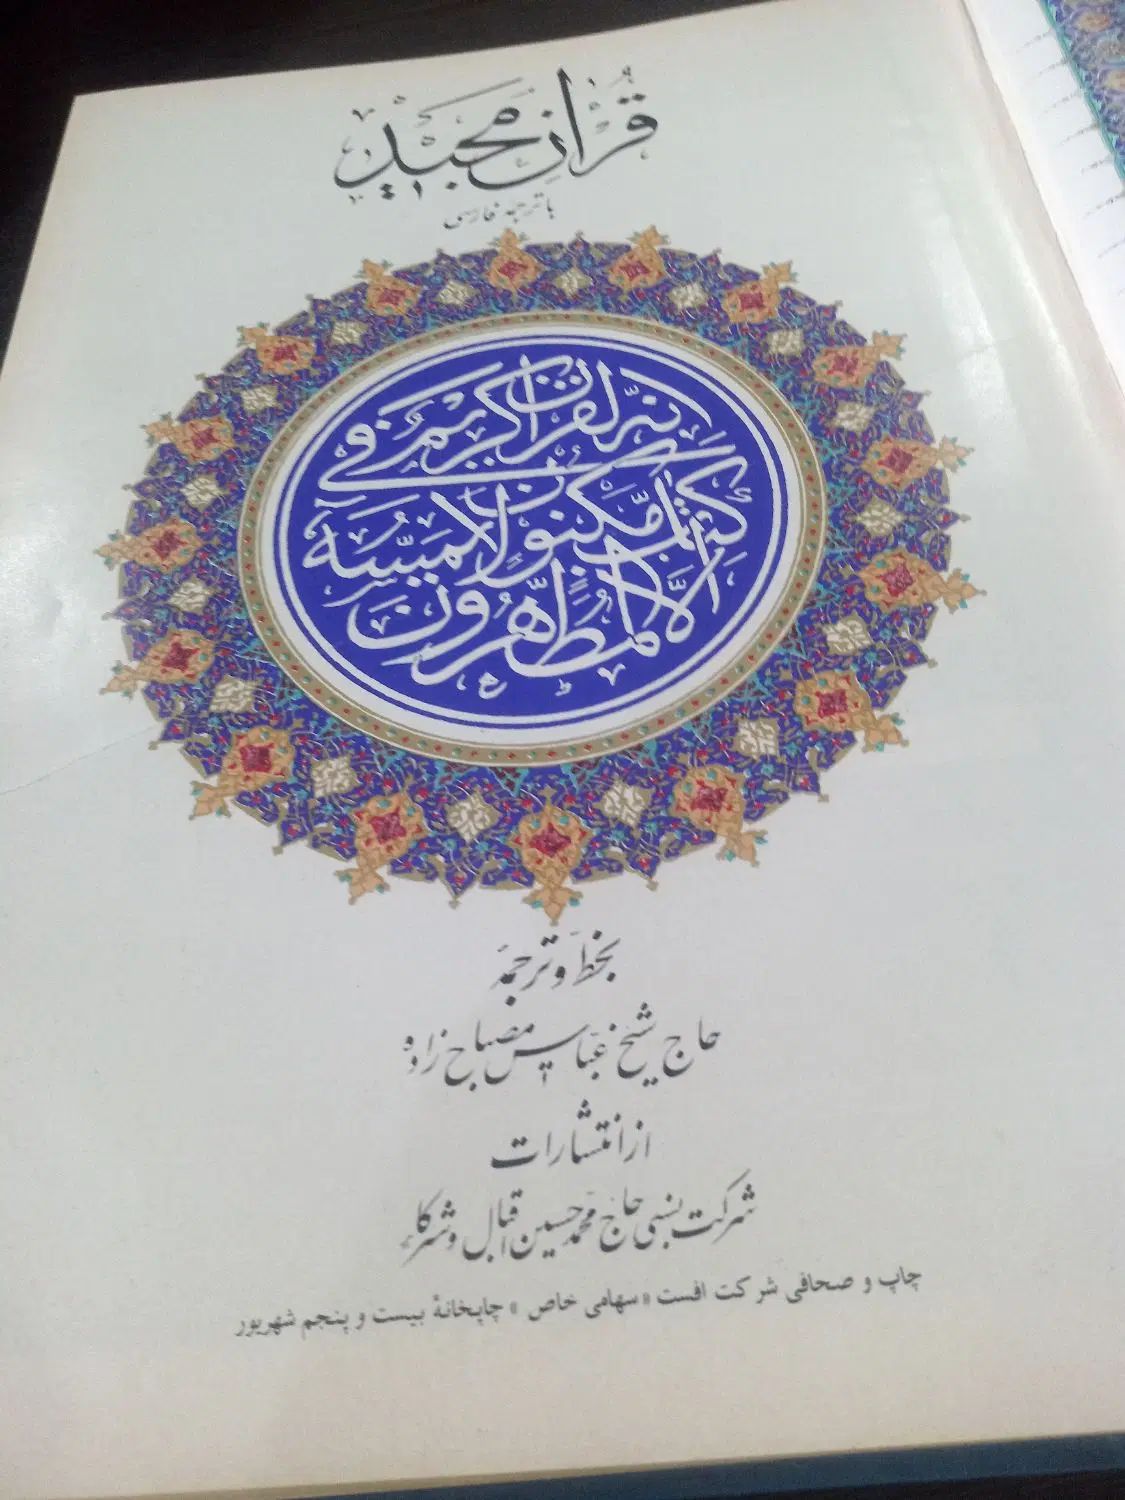 قرآن مجید
با ترجمه فارسی
انه لقرآن کریم فی
کتاب مکنون لا یمسه
الا المطهرون
بخط و ترجمه
حاج شیخ عباس مصباح زاده
از انتشارات
شرکت نسبی حاج محمد حسین اقبال و شرکاء
چاپ و صحافی شرکت افست «سهامی خاص» چاپخانهٔ بیست و پنجم شهریور